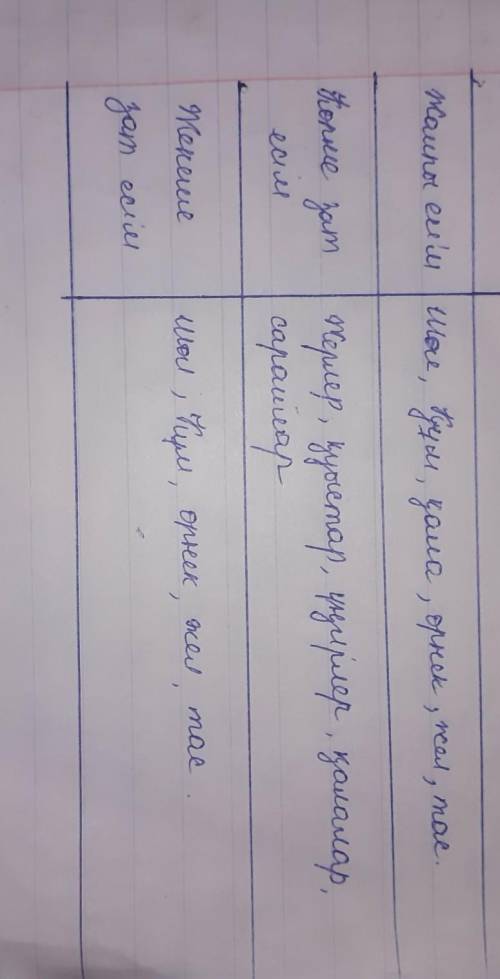 Жалпы есім
Шөл, құм, қала, өрнек, жел, тас.
Көпше зат
есім
Жерлер, қуыстар, үңгірлер, қалалар,
сарайлар
Жекеше
зат есім
шөл, құм, өрнек, жел, тас.